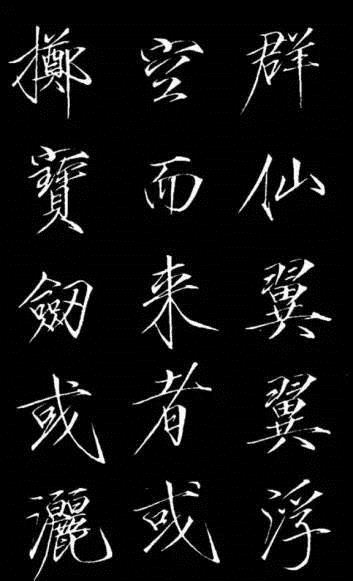 群仙翼翼浮
空而来者或
擲寶劔或灑